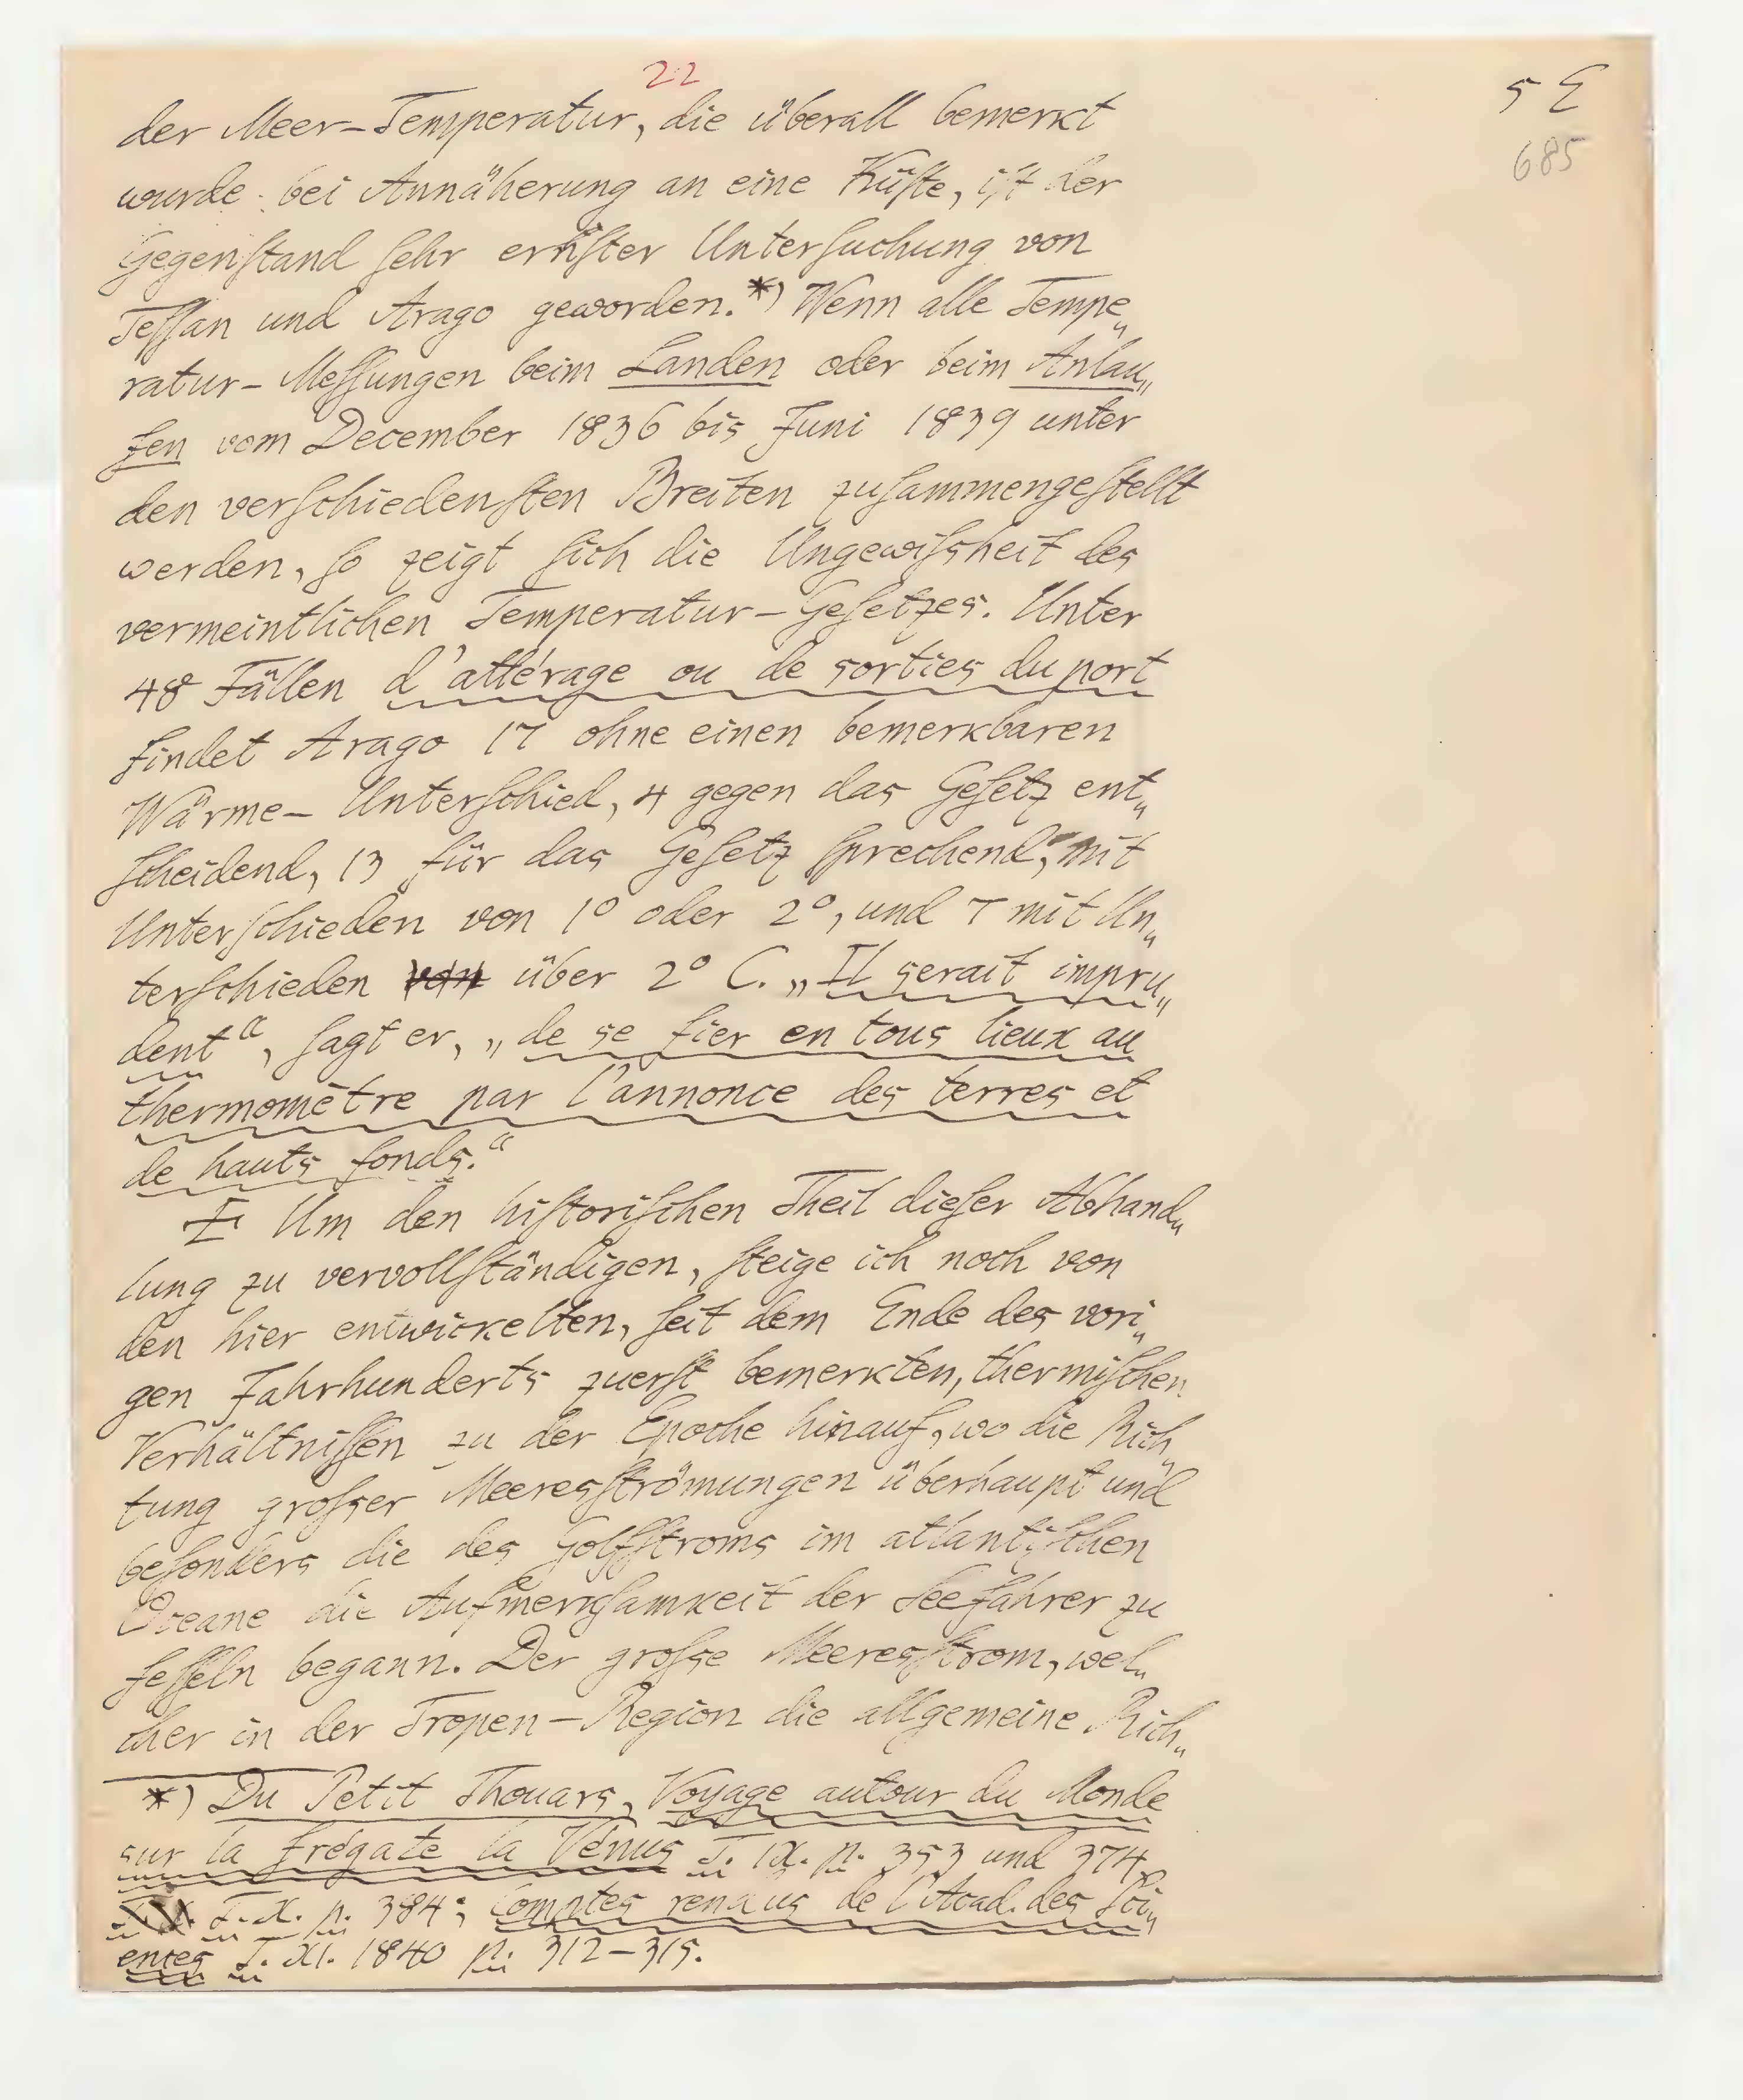 22
5 E
685
der Meer-Temperatur, die überall bemerkt
wurde bei Annäherung an eine Küſte, iſt der
Gegenſtand ſehr ernſter Unterſuchung von
Teſſan und Arago geworden.*) Wenn alle Tempe„
ratur-Meſſungen beim Landen oder beim Anlau„
fen vom December 1836 bis Juni 1839 unter
den verſchiedenſten Breiten zuſammengeſtellt
werden, ſo zeigt ſich die Ungewiſsheit des
vermeintlichen Temperatur-Geſetzes. Unter
48 Fällen d'attérage ou de sorties du port
findet Arago 17 ohne einen bemerkbaren
Wärme-Unterſchied, 4 gegen das Geſetz ent„
ſcheidend, 13 für das Geſetz ſprechend, mit
Unterſchieden von 1° oder 2°, und 7 mit Un„
terſchieden von über 2° C. „Il serait impru„
dent“, ſagt er, „de se fier en tous lieux au
thermomètre par l'annonce des terres et
de hauts fonds.“
Um den hiſtoriſchen Theil dieſer Abhand„
lung zu vervollſtändigen, ſteige ich noch von
den hier entwickelten, ſeit dem Ende des vori„
gen Jahrhunderts zuerſt bemerkten, thermiſchen
Verhältniſſen zu der Epoche hinauf, wo die Rich„
tung groſser Meeresſtrömungen überhaupt und
beſonders die des Golfſtroms im atlantiſchen
Oceane die Aufmerkſamkeit der Seefahrer zu
feſſeln begann. Der groſse Meeresſtrom, wel„
cher in der Tropen-Region die allgemeine Rich„
*) Du Petit Thouars, Voyage autour du Monde
sur la frégate la Vénus T. IX. p. 353 und 374,
T. X. p. 384; Comptes rendus de l'Acad. des Sci„
ences T. XI. 1840 p. 312-315.